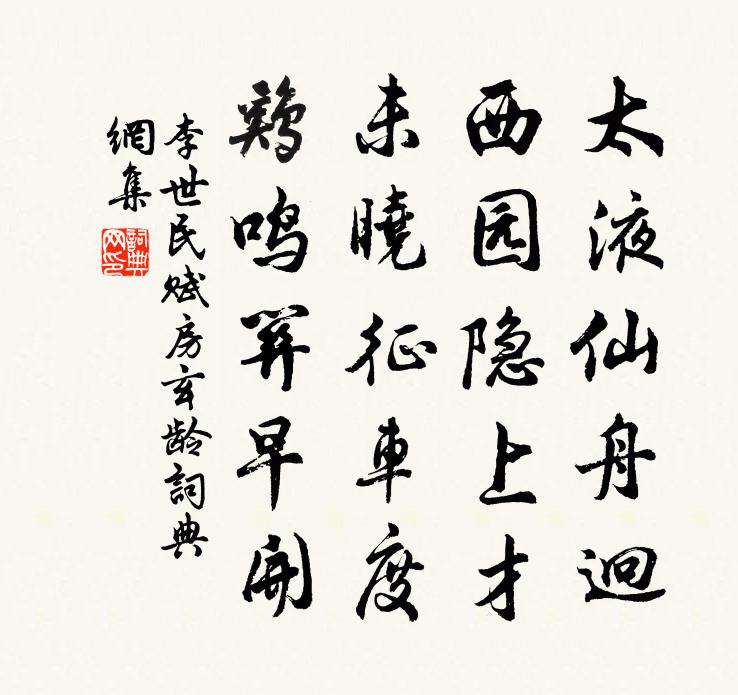 太液仙舟迥
西园隐上才
未曉征車度
鷄鸣關早開
李世民赋房玄龄詞典
網集
詞典网印